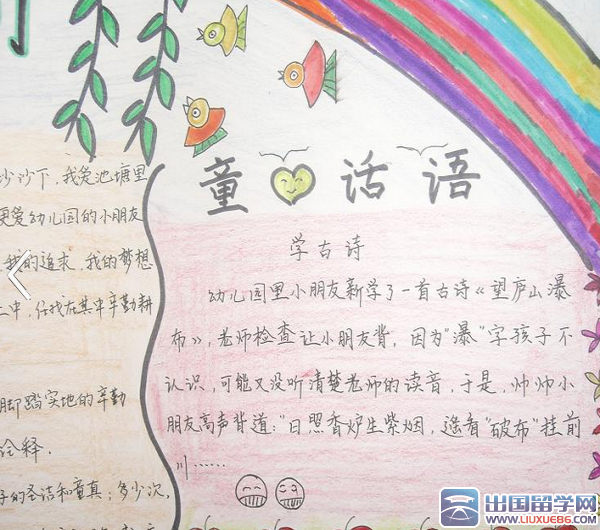 童心话语
学古诗
幼儿园里小朋友新学了一首古诗《望庐山瀑
布》，老师检查让小朋友背，因为"瀑"字孩子不
认识，可能又没听清楚老师的读音，于是，帅帅小
朋友高声背道："日照香炉生紫烟，遥看"破布"挂前
川……
沙沙下，我爱池塘里
更爱幼儿园的小朋友
我的追求，我的梦想
二中，任我在其中辛勤耕
脚踏实地的辛勤
诠释．
子的圣洁和童真；多少次，
出国留学网
WWW.LIUXUE86.COM